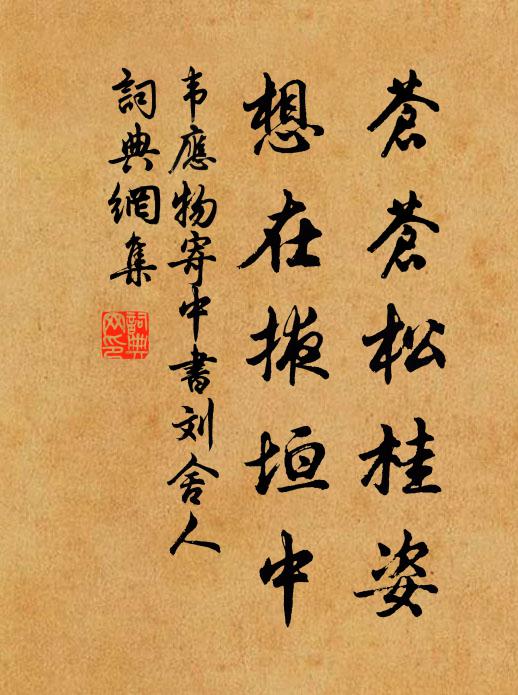 蒼蒼松桂姿
想在掖垣中
韦應物寄中書刘舍人
詞典網集
詞典网印